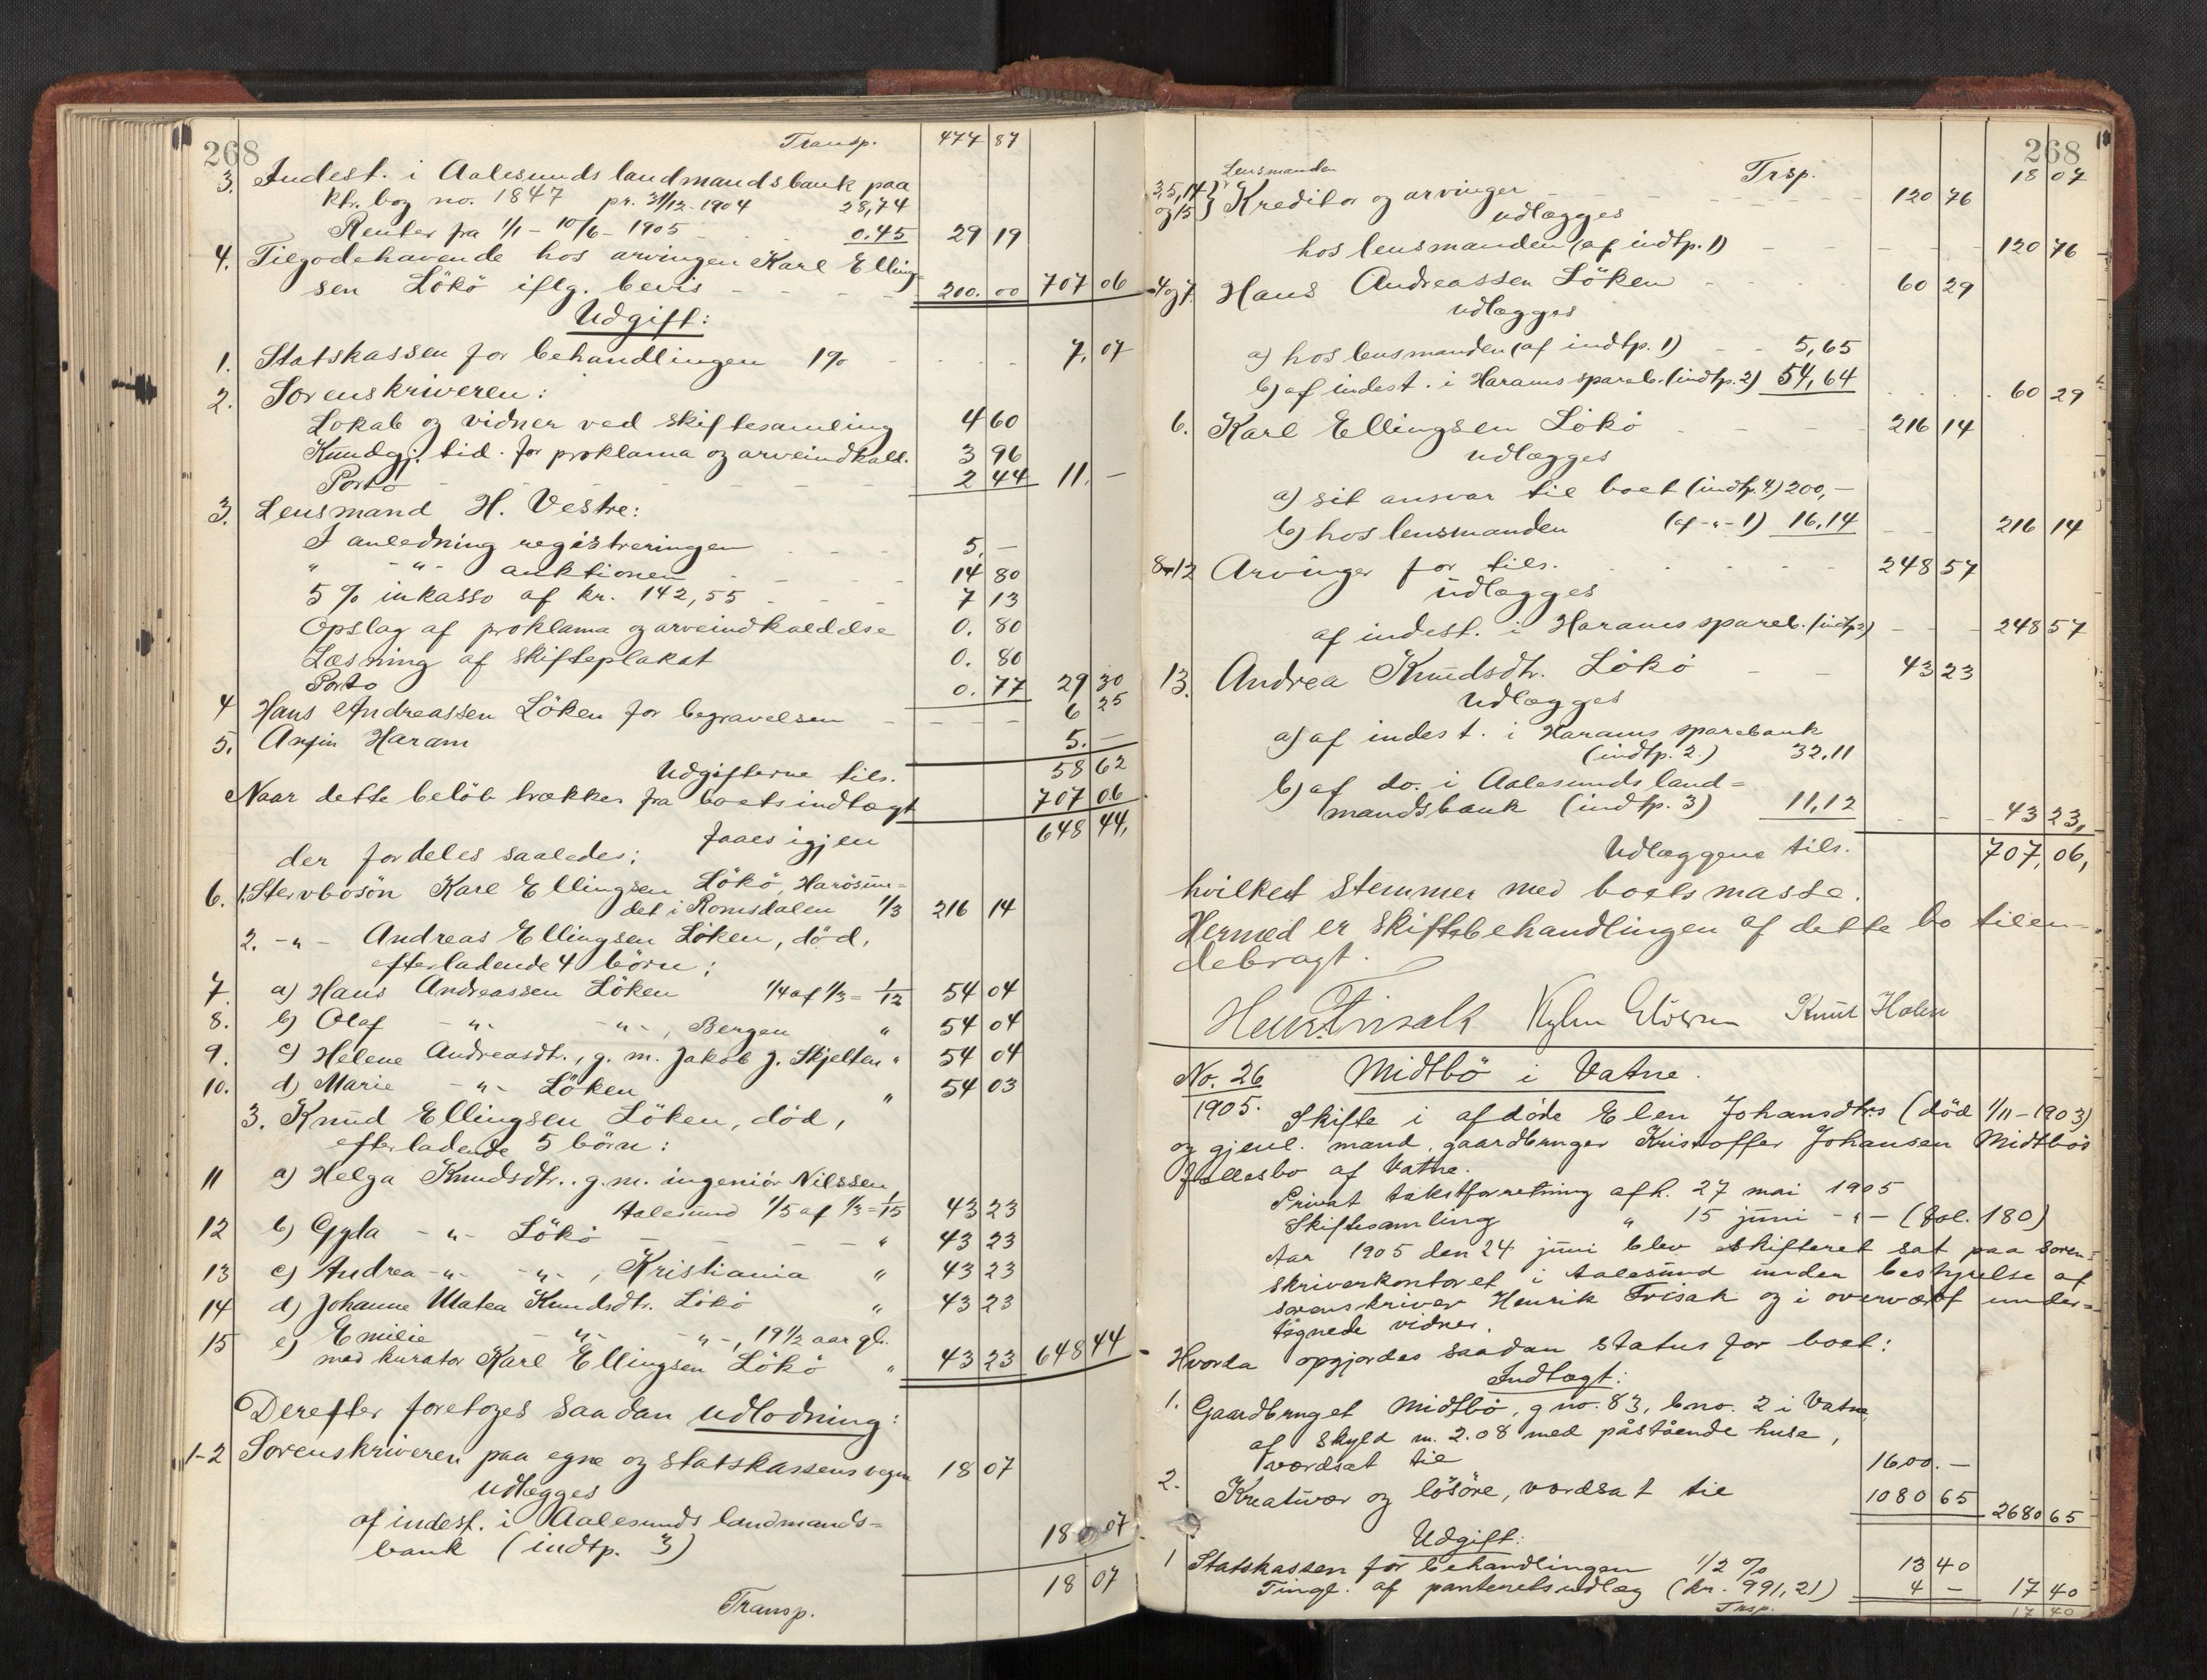 268
Transp. 477 87
3. Indest. i Aalesunds landmandsbank paa
ktr. bog no. 1847 pr. 31/12-1904 28,74
Renter fra 1/1 - 10/6 - 1905 0.45 29 19
4. Tilgodehavende hos arvingen Karl Elling-
sen Lökö iflg. bevis 200. 00 707 06
Udgift:
1. Statskassen for behandlingen 1% 7,07
2. Sorenskriveren:
Lokale og vidner ved skiftesamling 4 60
Kundgj. tid. for proklama og arveindkald. 3 96
Porto 2 44 11. —
3. Lensmand H. Vestre:
I anledning registreringen 5. —
" -"- auktionen 14 80
5 % inkasso af kr. 142,55 7 13
Opslag af proklama og arveindkaldelse 0. 80
Læsning af skifteplakat 0. 80
Porto 0. 77 29 30
4 Hans Andreassen Löken for begravelsen 6 25
5. Anfin Haram 5. —
Udgifterne tils. 58 62
Naar dette belöb trækkes fra boets indtægt 707 06
faaes igjen 648 44,
der fordeles saaledes:
6. 1. Stervbosön Karl Ellingsen Lökö, Harösun-
det i Romsdalen 1/3 216 14
2. -"- Andreas Ellingsen Löken, död,
efterladende 4 börn:
7. a) Hans Andreassen Löken 1/4 af 1/3 = 1/12 54 04
8. b) Olaf -"- -"-, Bergen " 54 04
9. c) Helene Andreasdt., g. m. Jakob J. Skjelten " 54 04
10. d) Marie -"- Löken " 54 03
3. Knud Ellingsen Löken, död,
efterladende 5 börn:
11 a) Helga Knudsdtr. g. m. ingeniör Nilssen,
Aalesund 1/5 af 1/3 = 1/15 43 23
12 b) Gyda -"- Lökö " 43 23
13 c) Andrea -"- -"-, Kristiania " 43 23
14 d) Johanne Matea Knudsdtr. Lökö " 43 23
15 e) Emilie -"- -"-, 19 1/2 aar gl.
med kurator Karl Ellingsen Lökö " 43 23 648 44
Derefter foretoges saadan udlodning:
1-2 Sorenskriveren paa egne og statskassens vegne 18 07
udlægges
af indest. i Aalesunds landmands-
bank (indtp. 3) 18 07
18 07
Transp.
268
Trsp. 18 07
Lensmanden
3,5,14 og 15 } Kreditor og arvinger 120 76
udlægges
hos lensmanden (af indtp. 1) 120 76
4 og 7. Hans Andreassen Löken 60 29
udlægges
a) hos lensmanden (af indtp. 1) 5,65
b) af indest. i Harams spareb. (indtp. 2) 54,64 60 29
6. Karl Ellingsen Lökö 216 14
udlægges
a) sit ansvar til boet (indtp. 4) 200,—
b) hos lensmanden (af -"- 1) 16,14 216 14
8-12 Arvinger for tils. 248 57
udlægges
af indest. i Harams spareb. (indtp 2) 248 57
13. Andrea Knudsdtr. Lökö 43 23
udlægges
a) af indest. i Harams sparebank
(indtp. 2.) 32.11
b) af do. i Aalesunds land=
mandsbank (indtp. 3) 11,12 43 23,
Udlæggene tils. 707,06,
hvilket stemmer med boets masse.
Hermed er skiftebehandlingen af dette bo tilen-
debragt.
Henr. Frisak Knut Holen
No. 26
1905. Midtbö i Vatne.
Skifte i afdöde Elen Johansdtrs (död 1/11-1903)
og gjenl. mand, gaardbruger Kristoffer Johansen Midtbös
fællesbo af Vatne.
Privat takstforretning afh. 27 mai 1905
Skiftesamling " 15 juni -"- (fol. 180)
Aar 1905 den 24 juni blev skifteret sat paa soren-
skriverkontoret i Aalesund under bestyrelse af
sorenskriver Henrik Frisak og i overvært under-
tegnede vidner.
Hvorda opgjordes saadan status for boet:
Indtægt:
1. Gaardbruget Midtbö, gno. 83, bno. 2 i Vatne
af skyld m. 2.08 med påstående huse,
værdsat til 1600. —
2. Kreaturer og lösöre, værdsat til 1080 65 2680 65
Udgift:
1 Statskassen for behandlingen 1/2 % 13 40
Tingl. af panteretsudlæg (kr. 991,21) 4 — 17 40
Trsp. 17 40